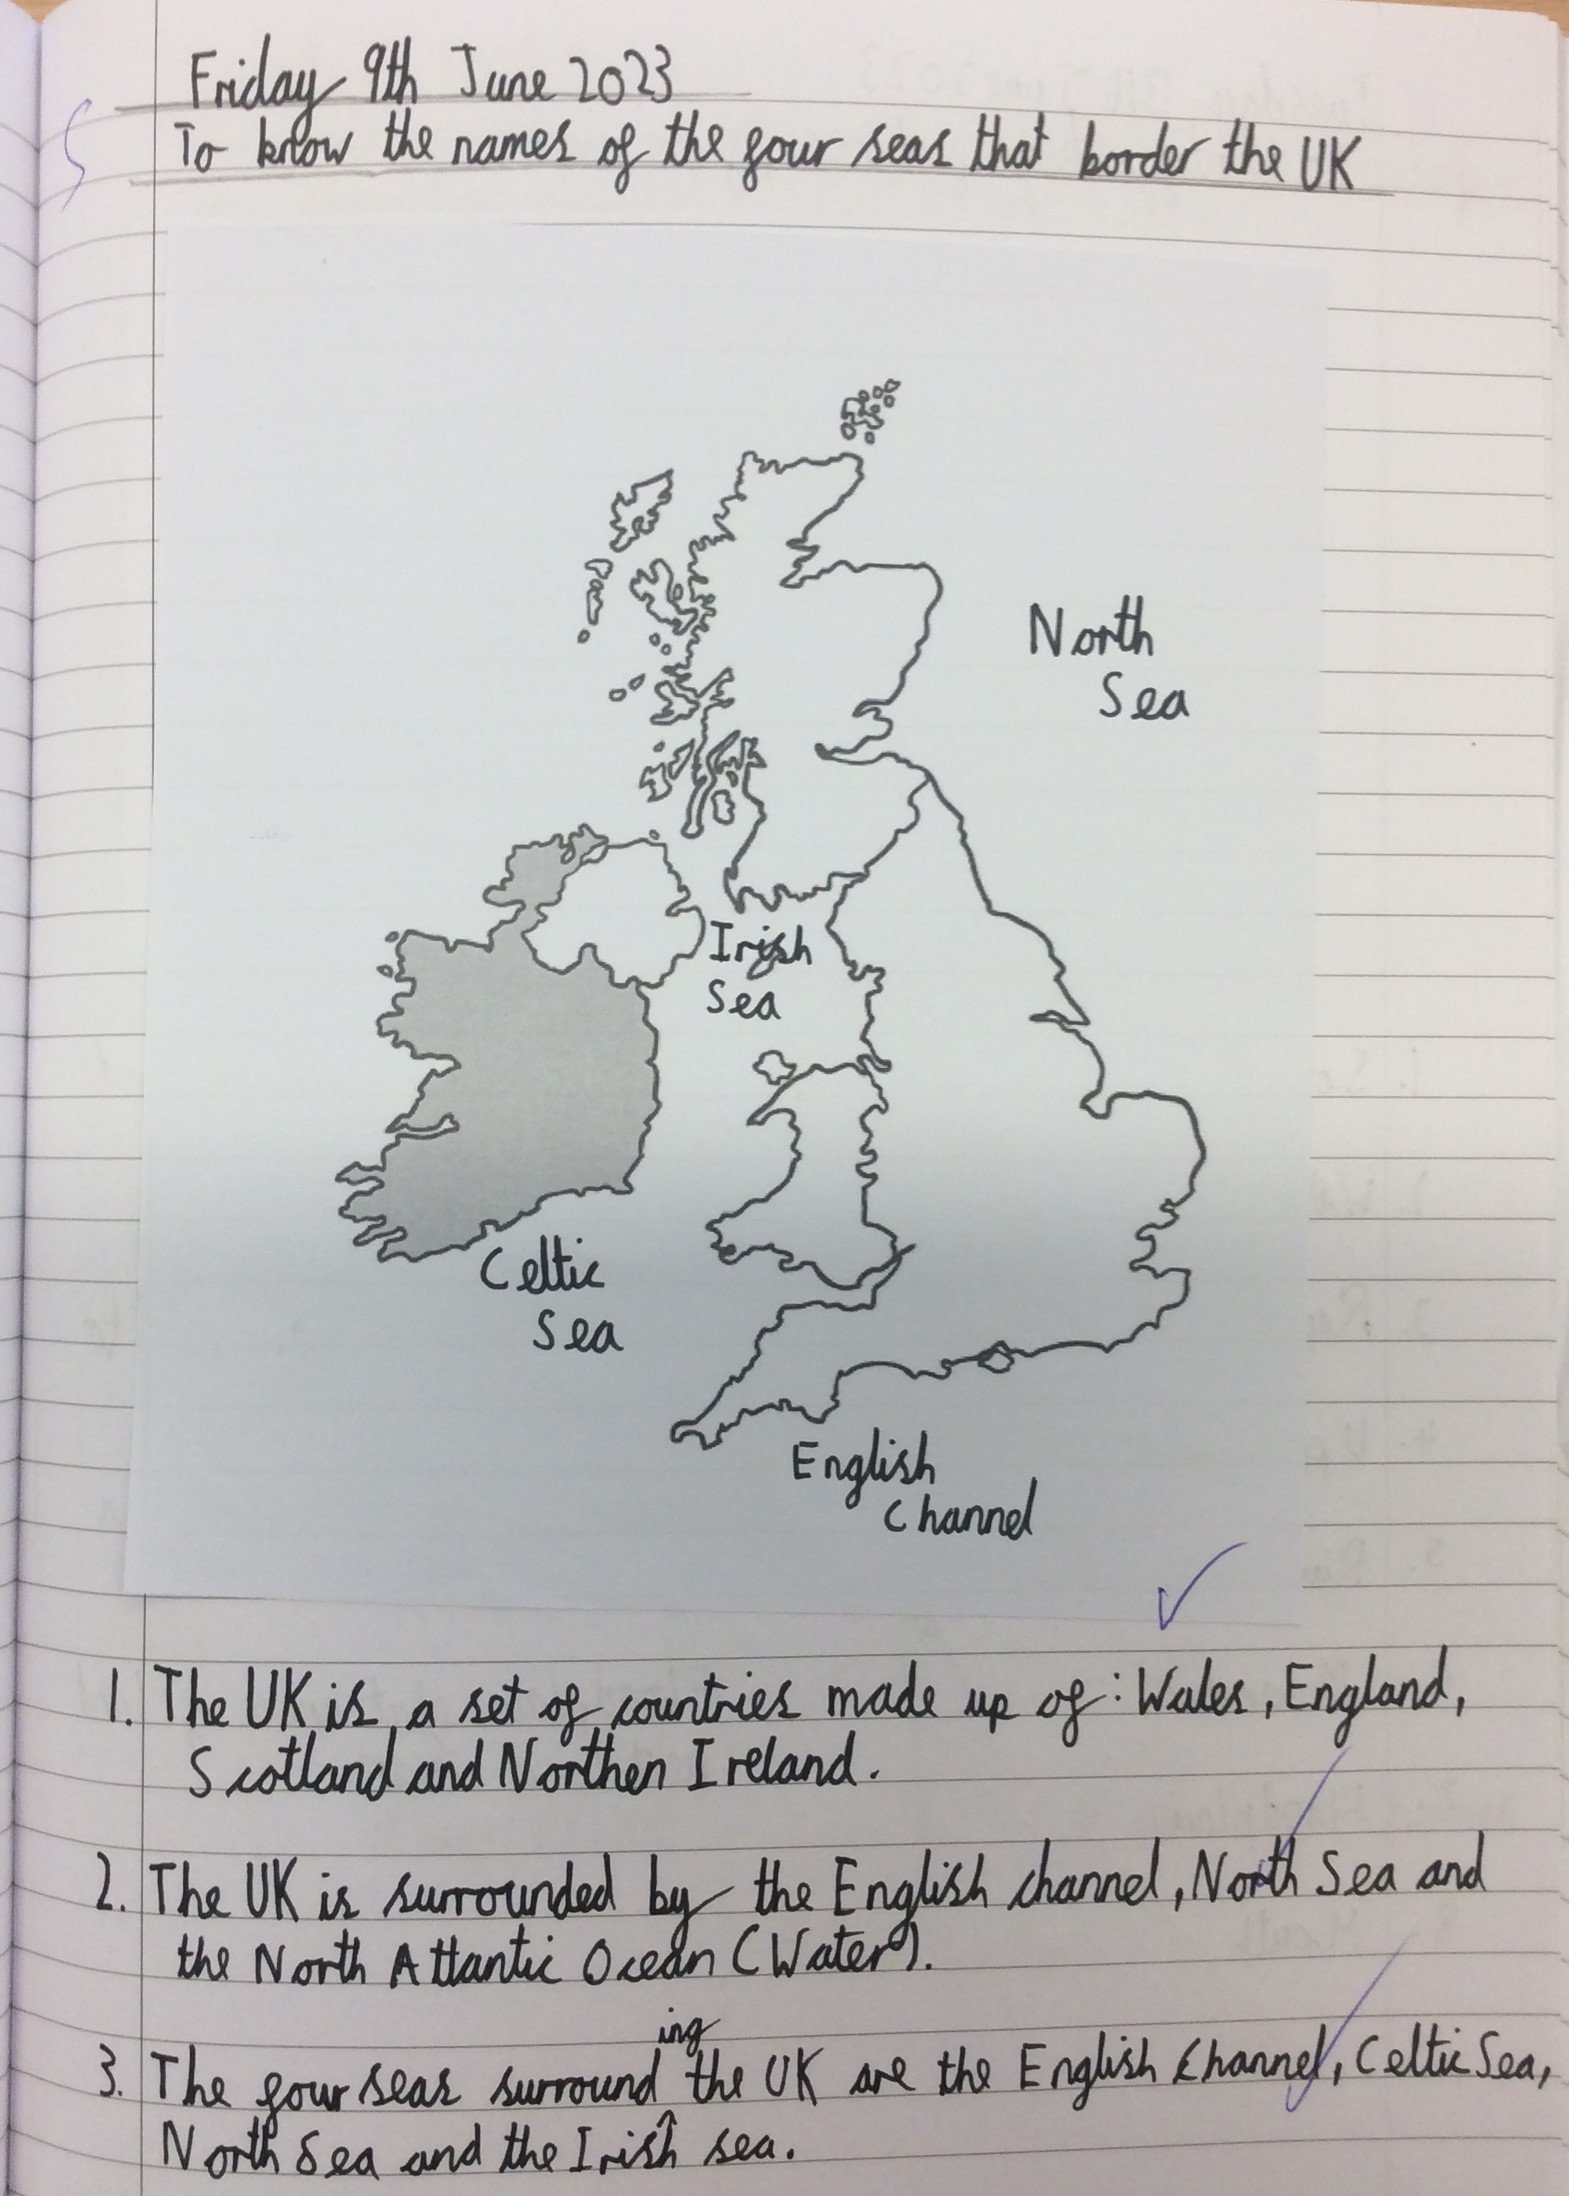 Friday 9th June 2023
To know the names of the four seas that border the UK
North
Sea
Irish
Sea
Celtic
Sea
English
Channel
1. The UK is a set of countries made up of: Wales, England,
Scotland and Northen Ireland.
2. The UK is surrounded by the English channel, North Sea and
the North Atlantic Ocean (Water).
ing
3. The four seas surround the UK are the English Channel, Celtic Sea,
North Sea and the Irish sea.